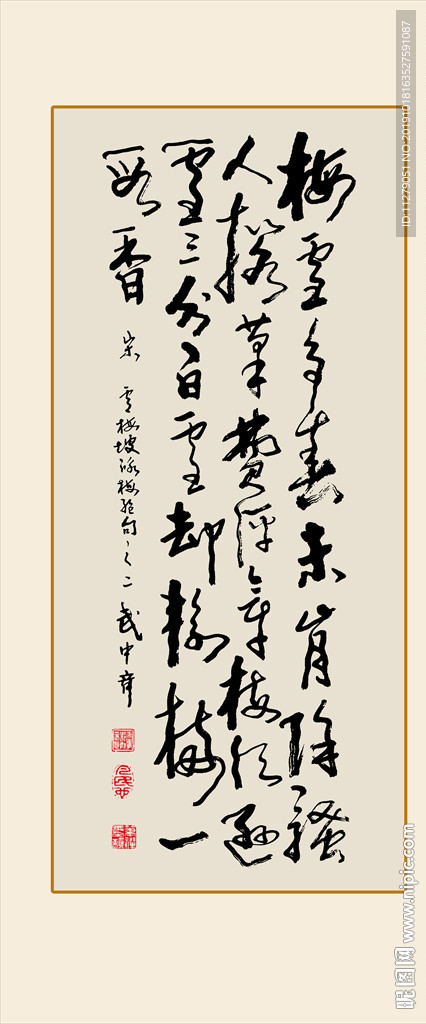 梅雪争春未肯降骚
人搁笔费评章梅须逊
雪三分白雪却输梅一
段香
宋 卢梅坡咏梅绝句之二 武中奇
ID:11279051 NO:20191018163527591087
昵图网 www.nipic.com